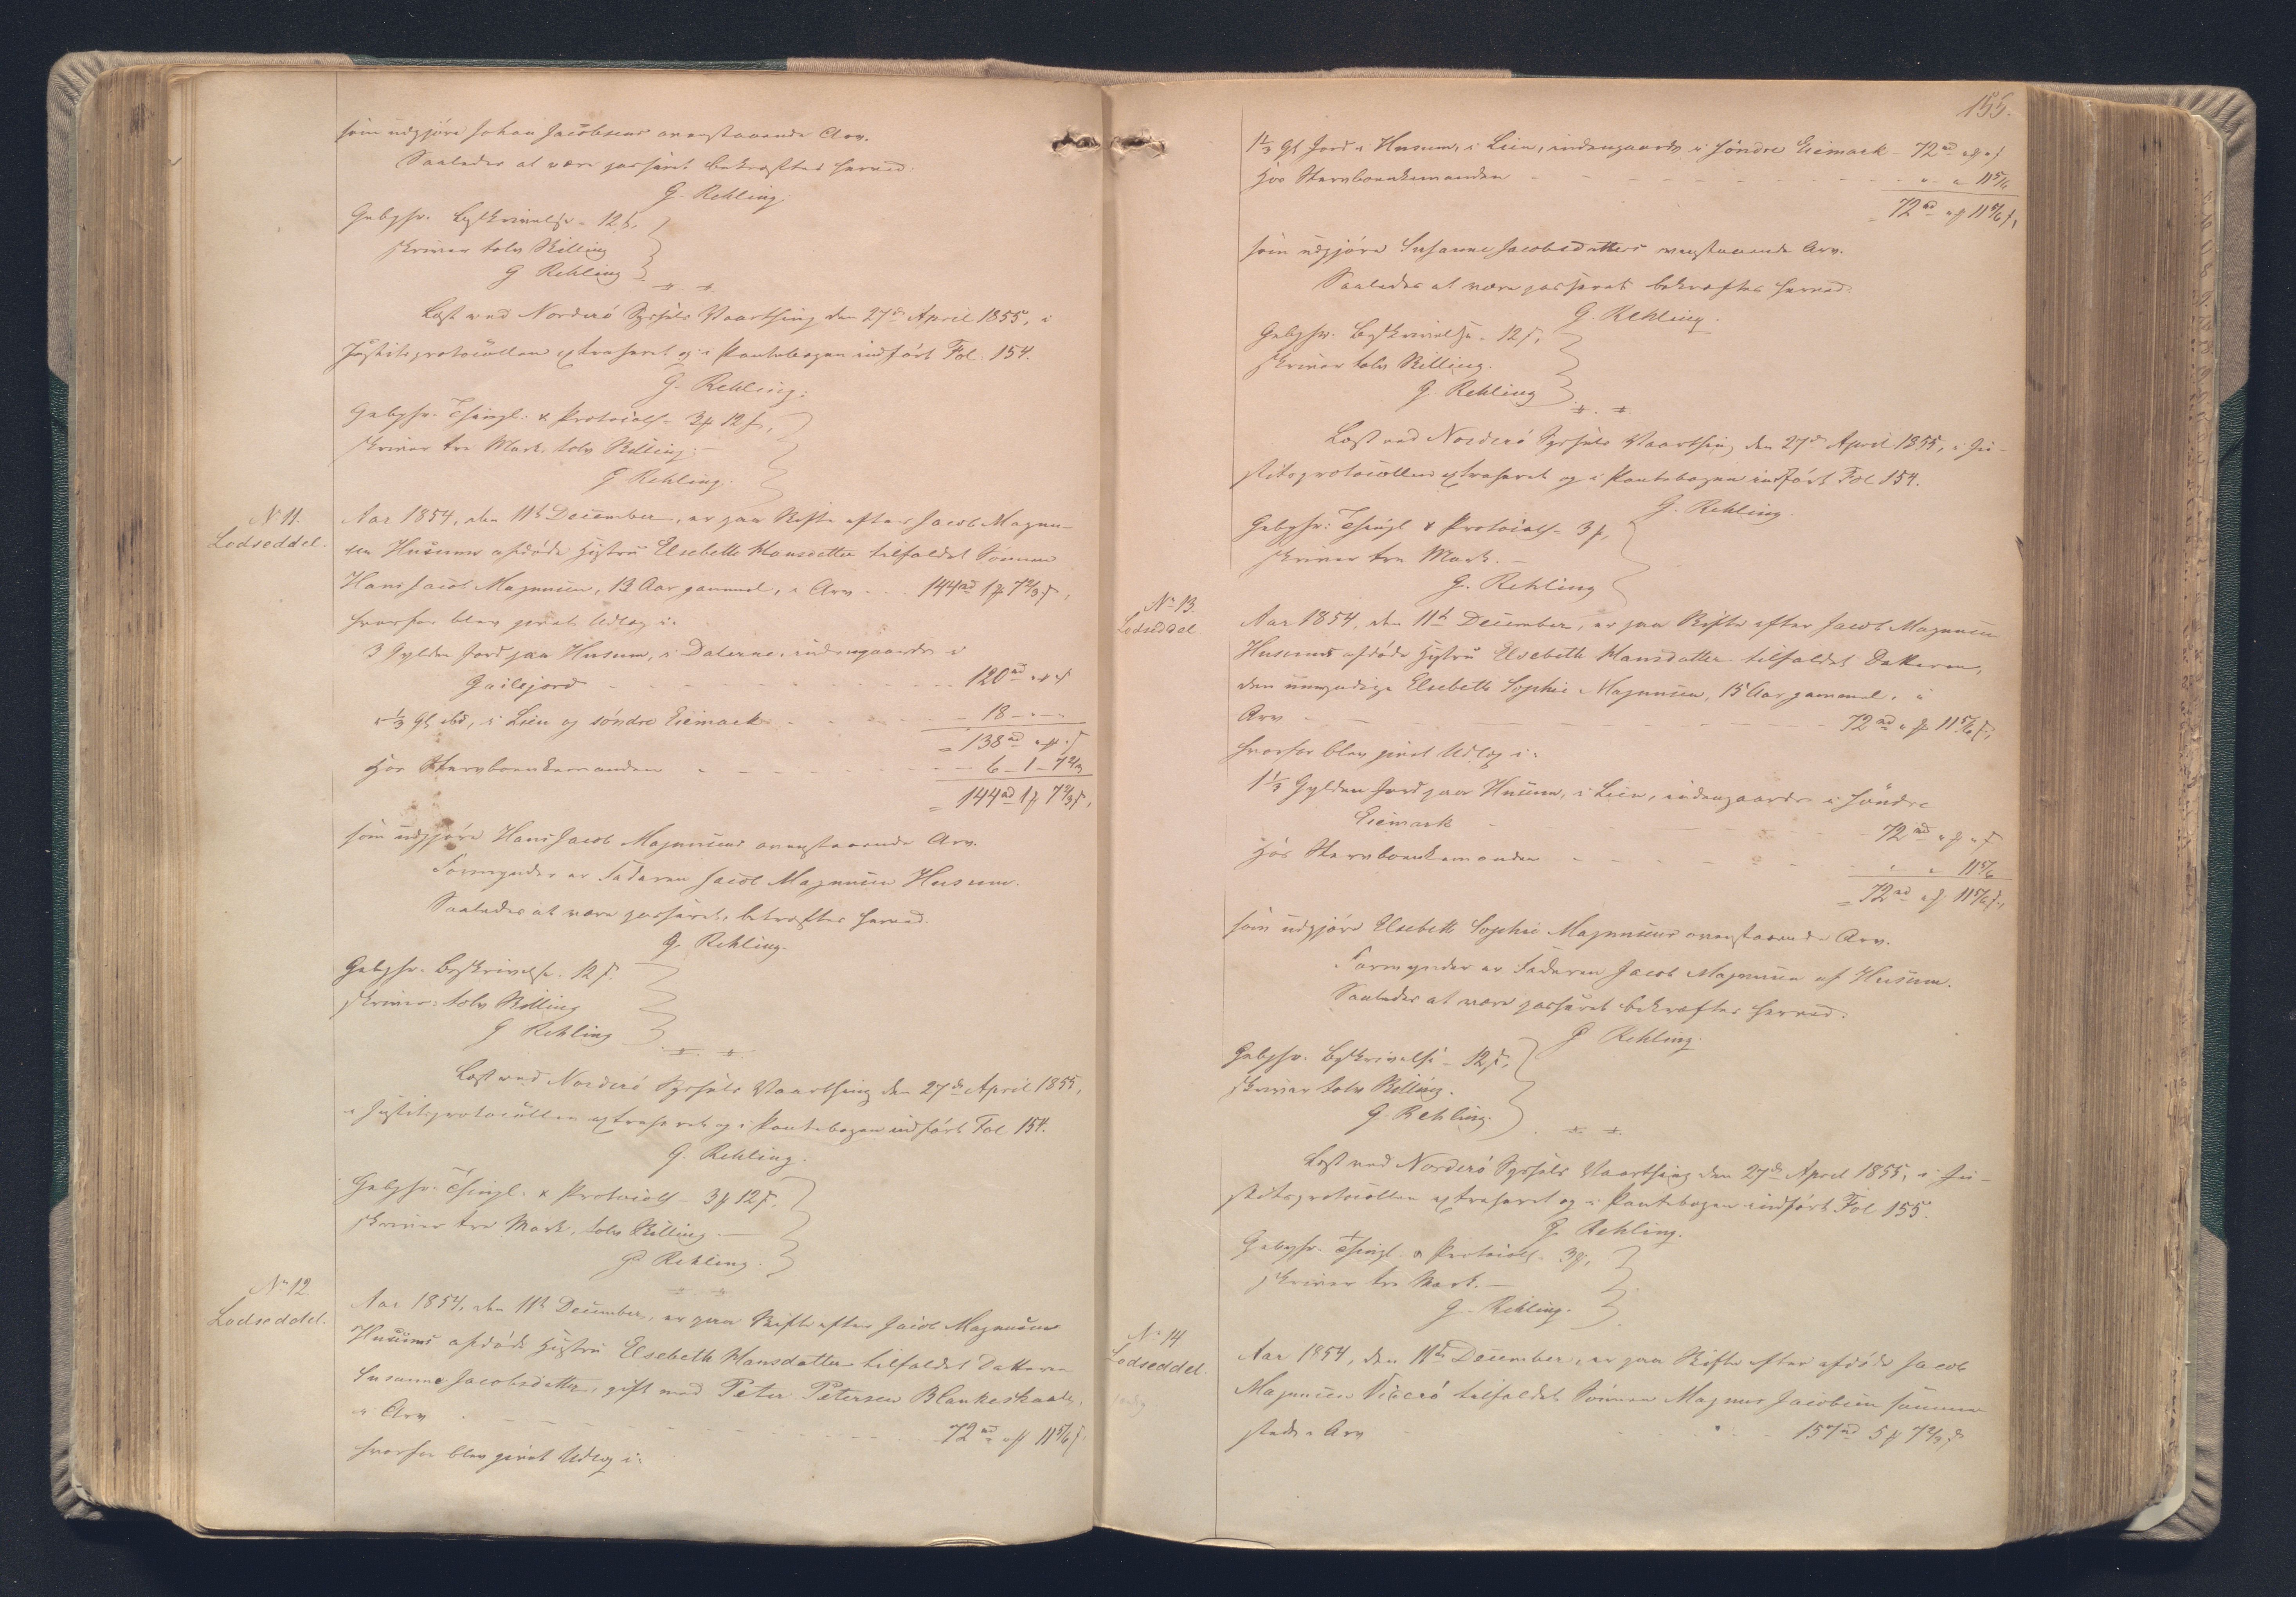 som udgjöre Johan Jacobsens ovenstaaende Arv.
Saaledes at være passeret bekræftes herved.
G. Rehling.
Gebyhr. Beskrivelse - 12 s,
skriver tolv Skilling
G Rehling
Læst ved Norderö Syssels Vaarthing den 27de April 1855, i
Justitsprotocollen extraheret og i Pantebogen indfört Fol. 154.
G. Rehling.
Gebyhr. Thingl: & Protocoll - 3 12 s,
skriver tre Mark, tolv Skilling.
G Rehling.
No 11.
Lodseddel.
Aar 1854, den 11te December, er paa Skifte efter Jacob Magnu-
sen Husums afdöde Hustru Elsebeth Hansdatter tilfaldet Sönnen
Hans Jacob Magnusen, 13 Aar gammel, i Arv - - - 144 rd 1 7 2/3 s,
hvorfor blev givet Udlæg i:
3 Gylden Jord paa Husum, i Dalerne, indengaards i
Gailejord - - - 120 rd " "
1/3 Gl ibd, i Lien og söndre Eiemark - - - 18 - " - "
= 138 rd " "
Hos Stervboenkemanden - - - 6 - 1 - 7 2/3
= 144 rd 1 7 2/3 s,
som udgjöre Hans Jacob Magnusens ovenstaaende Arv.
Formynder er Faderen Jacob Magnusen Husum.
Saaledes at være passeret, bekræftes herved.
G. Rehling.
Gebyhr. Beskrivelse. 12 s.
skriver tolv Skilling
G Rehling
Læst ved Norderö Syssels Vaarthing den 27de April 1855,
i Justitsprotocollen extraheret og i Pantebogen indfört Fol 154.
G. Rehling.
Gebyhr. Thingl. & Protocoll - 3 12 s.
skriver tre Mark, tolv Skilling. -
G Rehling.
No 12
Lodseddel.
Aar 1854, den 11te December, er paa Skifte efter Jacob Magnusen
Husums afdöde Hustru Elsebeth Hansdatter tilfaldet Datteren
Susanne Jacobsdatter, gift med Peter Petersen Blankeskaale,
i Arv - - - 72 rd " 11 5/6 s
hvorfor blev givet Udlæg i:
155.
1 1/3 Gl Jord i Husum, i Lien, indengaards i söndre Eiemark - 72 rd " "
Hos Stervboenkemanden - - - " - " 11 5/6
72 rd " 11 5/6 s,
som udgjöre Susanne Jacobsdatters ovenstaaende Arv.
Saaledes at være passeret bekræftes herved.
G. Rehling.
Gebyhr. Beskrivelse. 12 s,
skriver tolv Skilling.
G Rehling
Læst ved Norderö Syssels Vaarthing den 27de April 1855, i Ju-
stitsprotocollen extraheret og i Pantebogen indfört Fol 154.
G. Rehling.
Gebyhr: Thingl & Protocoll - 3
skriver tre Mark. -
G. Rehling
No 13.
Lodseddel
Aar 1854, den 11te December, er paa Skifte efter Jacob Magnusen
Husums afdöde Hustru Elsebeth Hansdatter tilfaldet Datteren,
den umyndige Elsebeth Sophie Magnusen, 15 Aar gammel, i
Arv - - - 72 rd " 11 5/6 s,
hvorfor blev givet Udlæg i:
1 1/3 Gylden Jord paa Husum, i Lien, indengaards i söndre
Eiemark - - - 72 rd " "
Hos Stervboenkemanden - - - " " 11 5/6
= 72 rd " 11 5/6 s,
som udgjöre Elsebeth Sophie Magnusens ovenstaaende Arv.
Formynder er Faderen Jacob Magnusen af Husum.
Saaledes at være passeret bekræftes herved.
G Rehling.
Gebyhr. Beskrivelse - 12 s,
skriver tolv Skilling.
G. Rehling.
Læst ved Norderö Syssels Vaarthing den 27de April 1855, i Ju-
stitsprotocollen extraheret og i Pantebogen indfört Fol 155.
G. Rehling.
Gebyhr. Thingl. & Protocoll - 3
skriver tre Mark. -
G. Rehling.
No 14
Lodseddel.
Aar 1854, den 11te December, er paa Skifte efter afdöde Jacob
Magnusen Viderö tilfaldet Sönnen Magnus Jacobsen samme-
steds i Arv - - - 157 rd 5 7 2/3 s